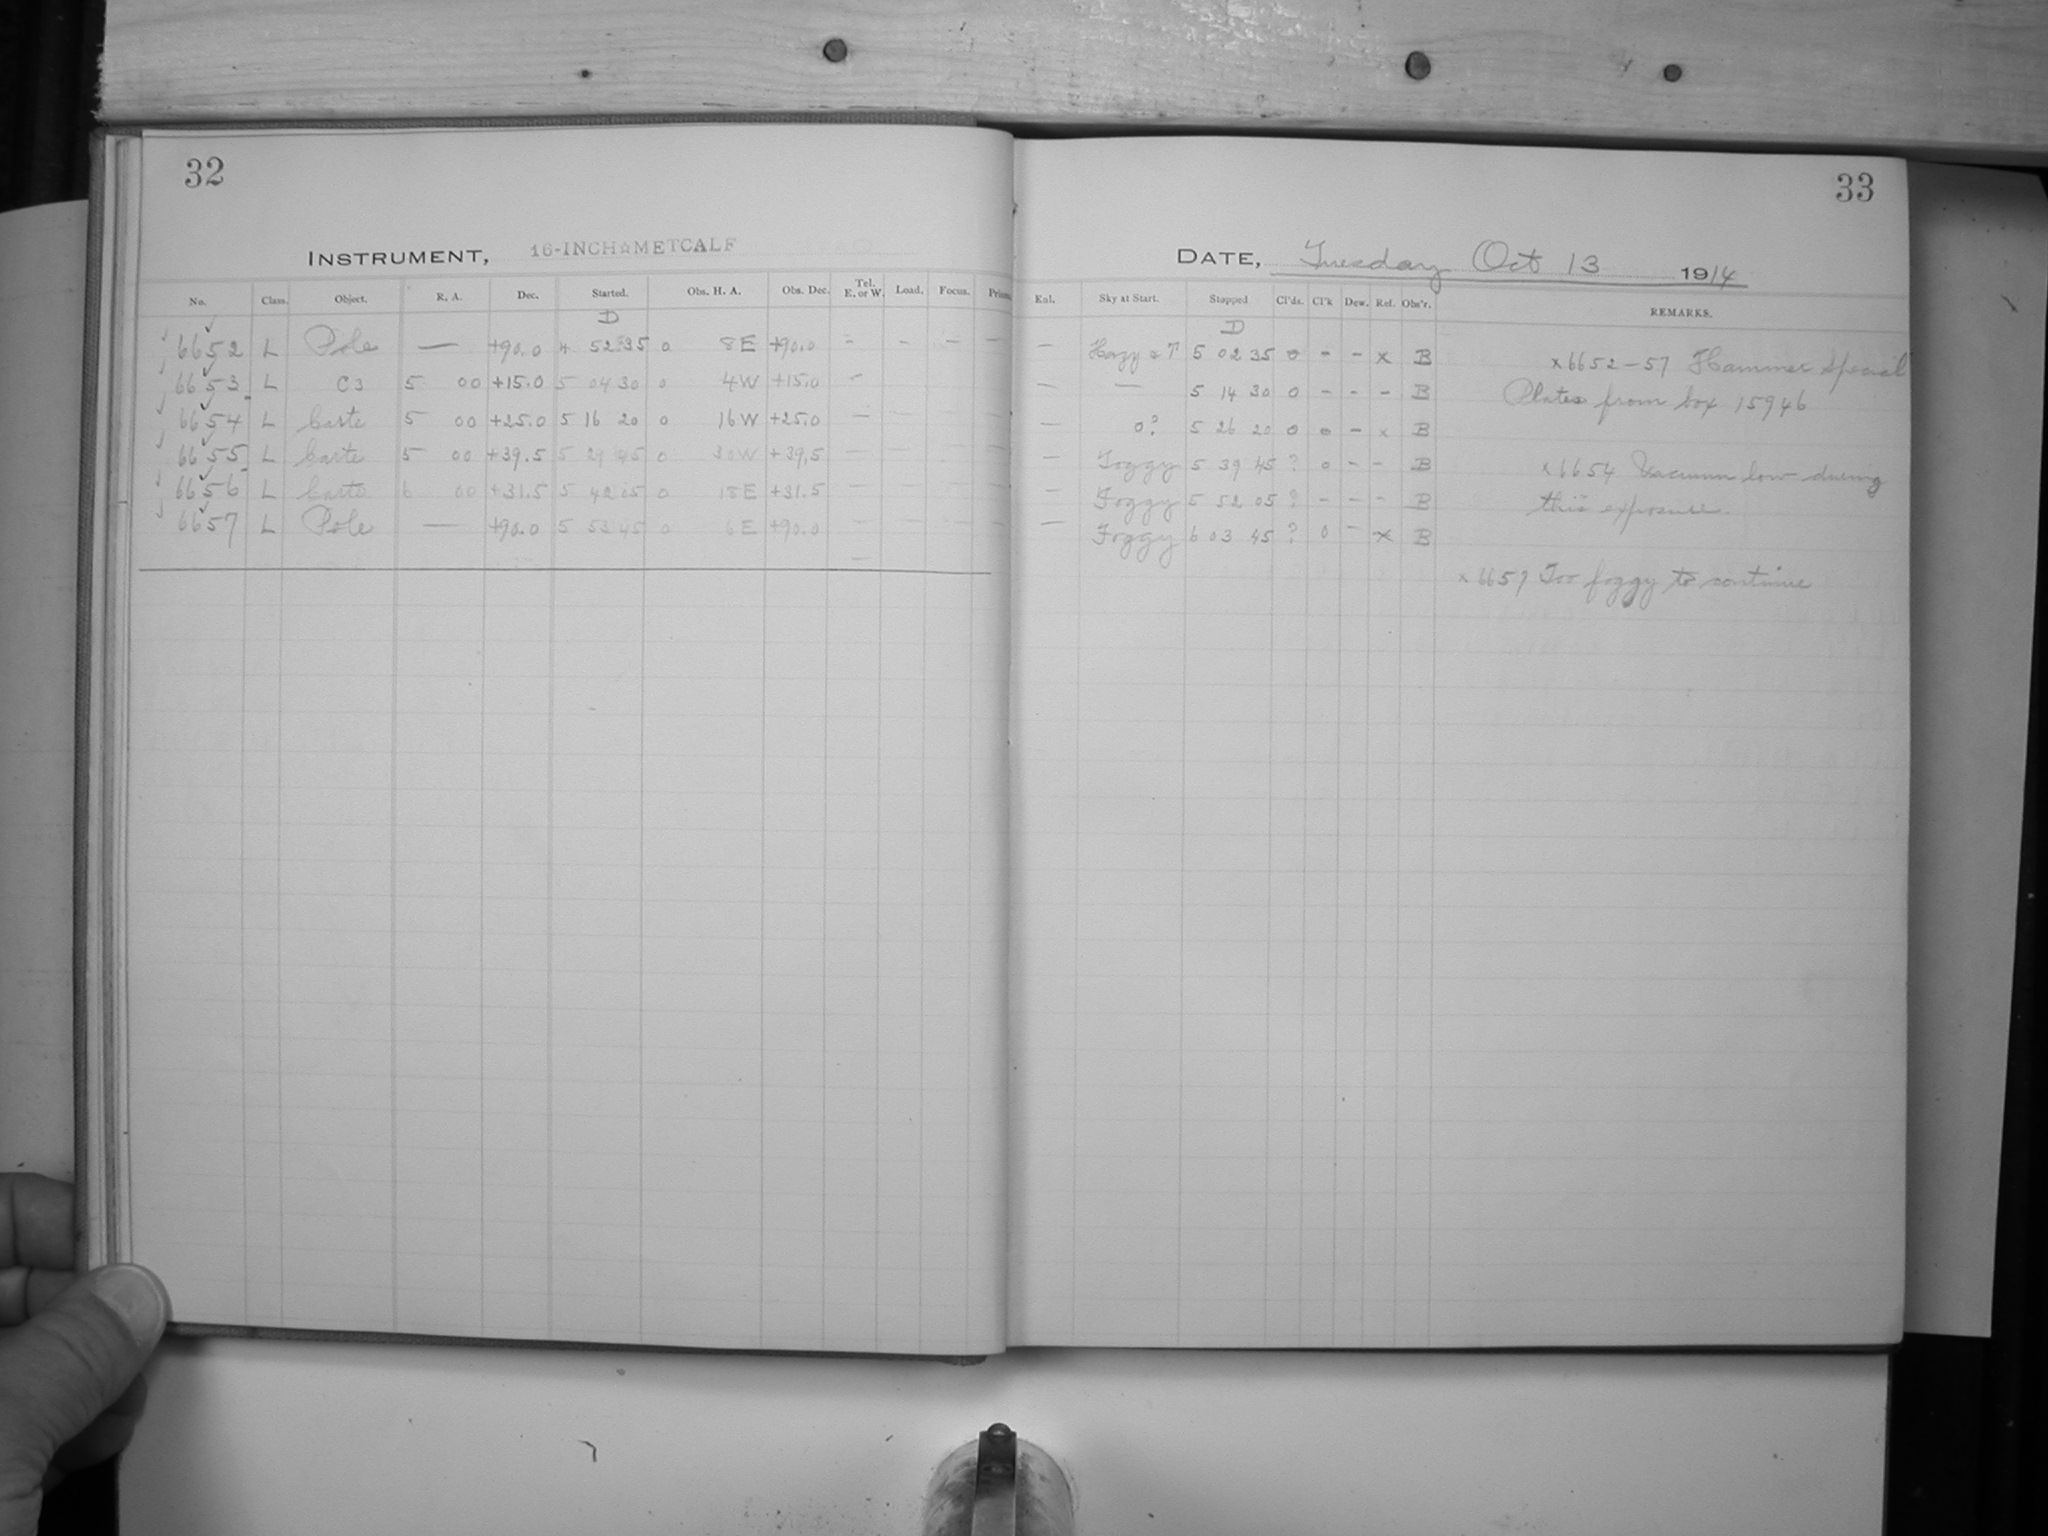 32
INSTRUMENT, 16-INCH☆METCALF
No. Class. Object. R. A. Dec. Started. Obs. H. A. Obs. Dec. Tel. E. or W. Load. Focus. Prism.
D
6652 L Pole — +90.0 4 52 35 0 8E +90.0 - - - -
6653 L C3 5 00 +15.0 5 04 30 0 4W +15.0 -
6654 L Carte 5 00 +25.0 5 16 20 0 16W +25.0 -
6655 L Carte 5 00 +39.5 5 29 45 0 30W +39.5 -
6656 L Carte 6 00 +31.5 5 42 05 0 18E +31.5 -
6657 L Pole — +90.0 5 53 45 0 6E +90.0 -
33
DATE, Tuesday Oct 13 1914
Sky at Start. Stopped Cl'ds. Cl'k Dew. Ref. Obs'r. REMARKS.
D
— Hazy & T 5 02 35 0 - - x B x6652-57 Hammer Special
— — 5 14 30 0 - - - B Plates from box 15946
— 0? 5 26 20 0 0 - x B
— Foggy 5 39 45 ? 0 - - B x6654 Vacuum low during
— Foggy 5 52 05 ? - - - B this exposure.
— Foggy 6 03 45 ? 0 - x B
x6657 Too foggy to continue